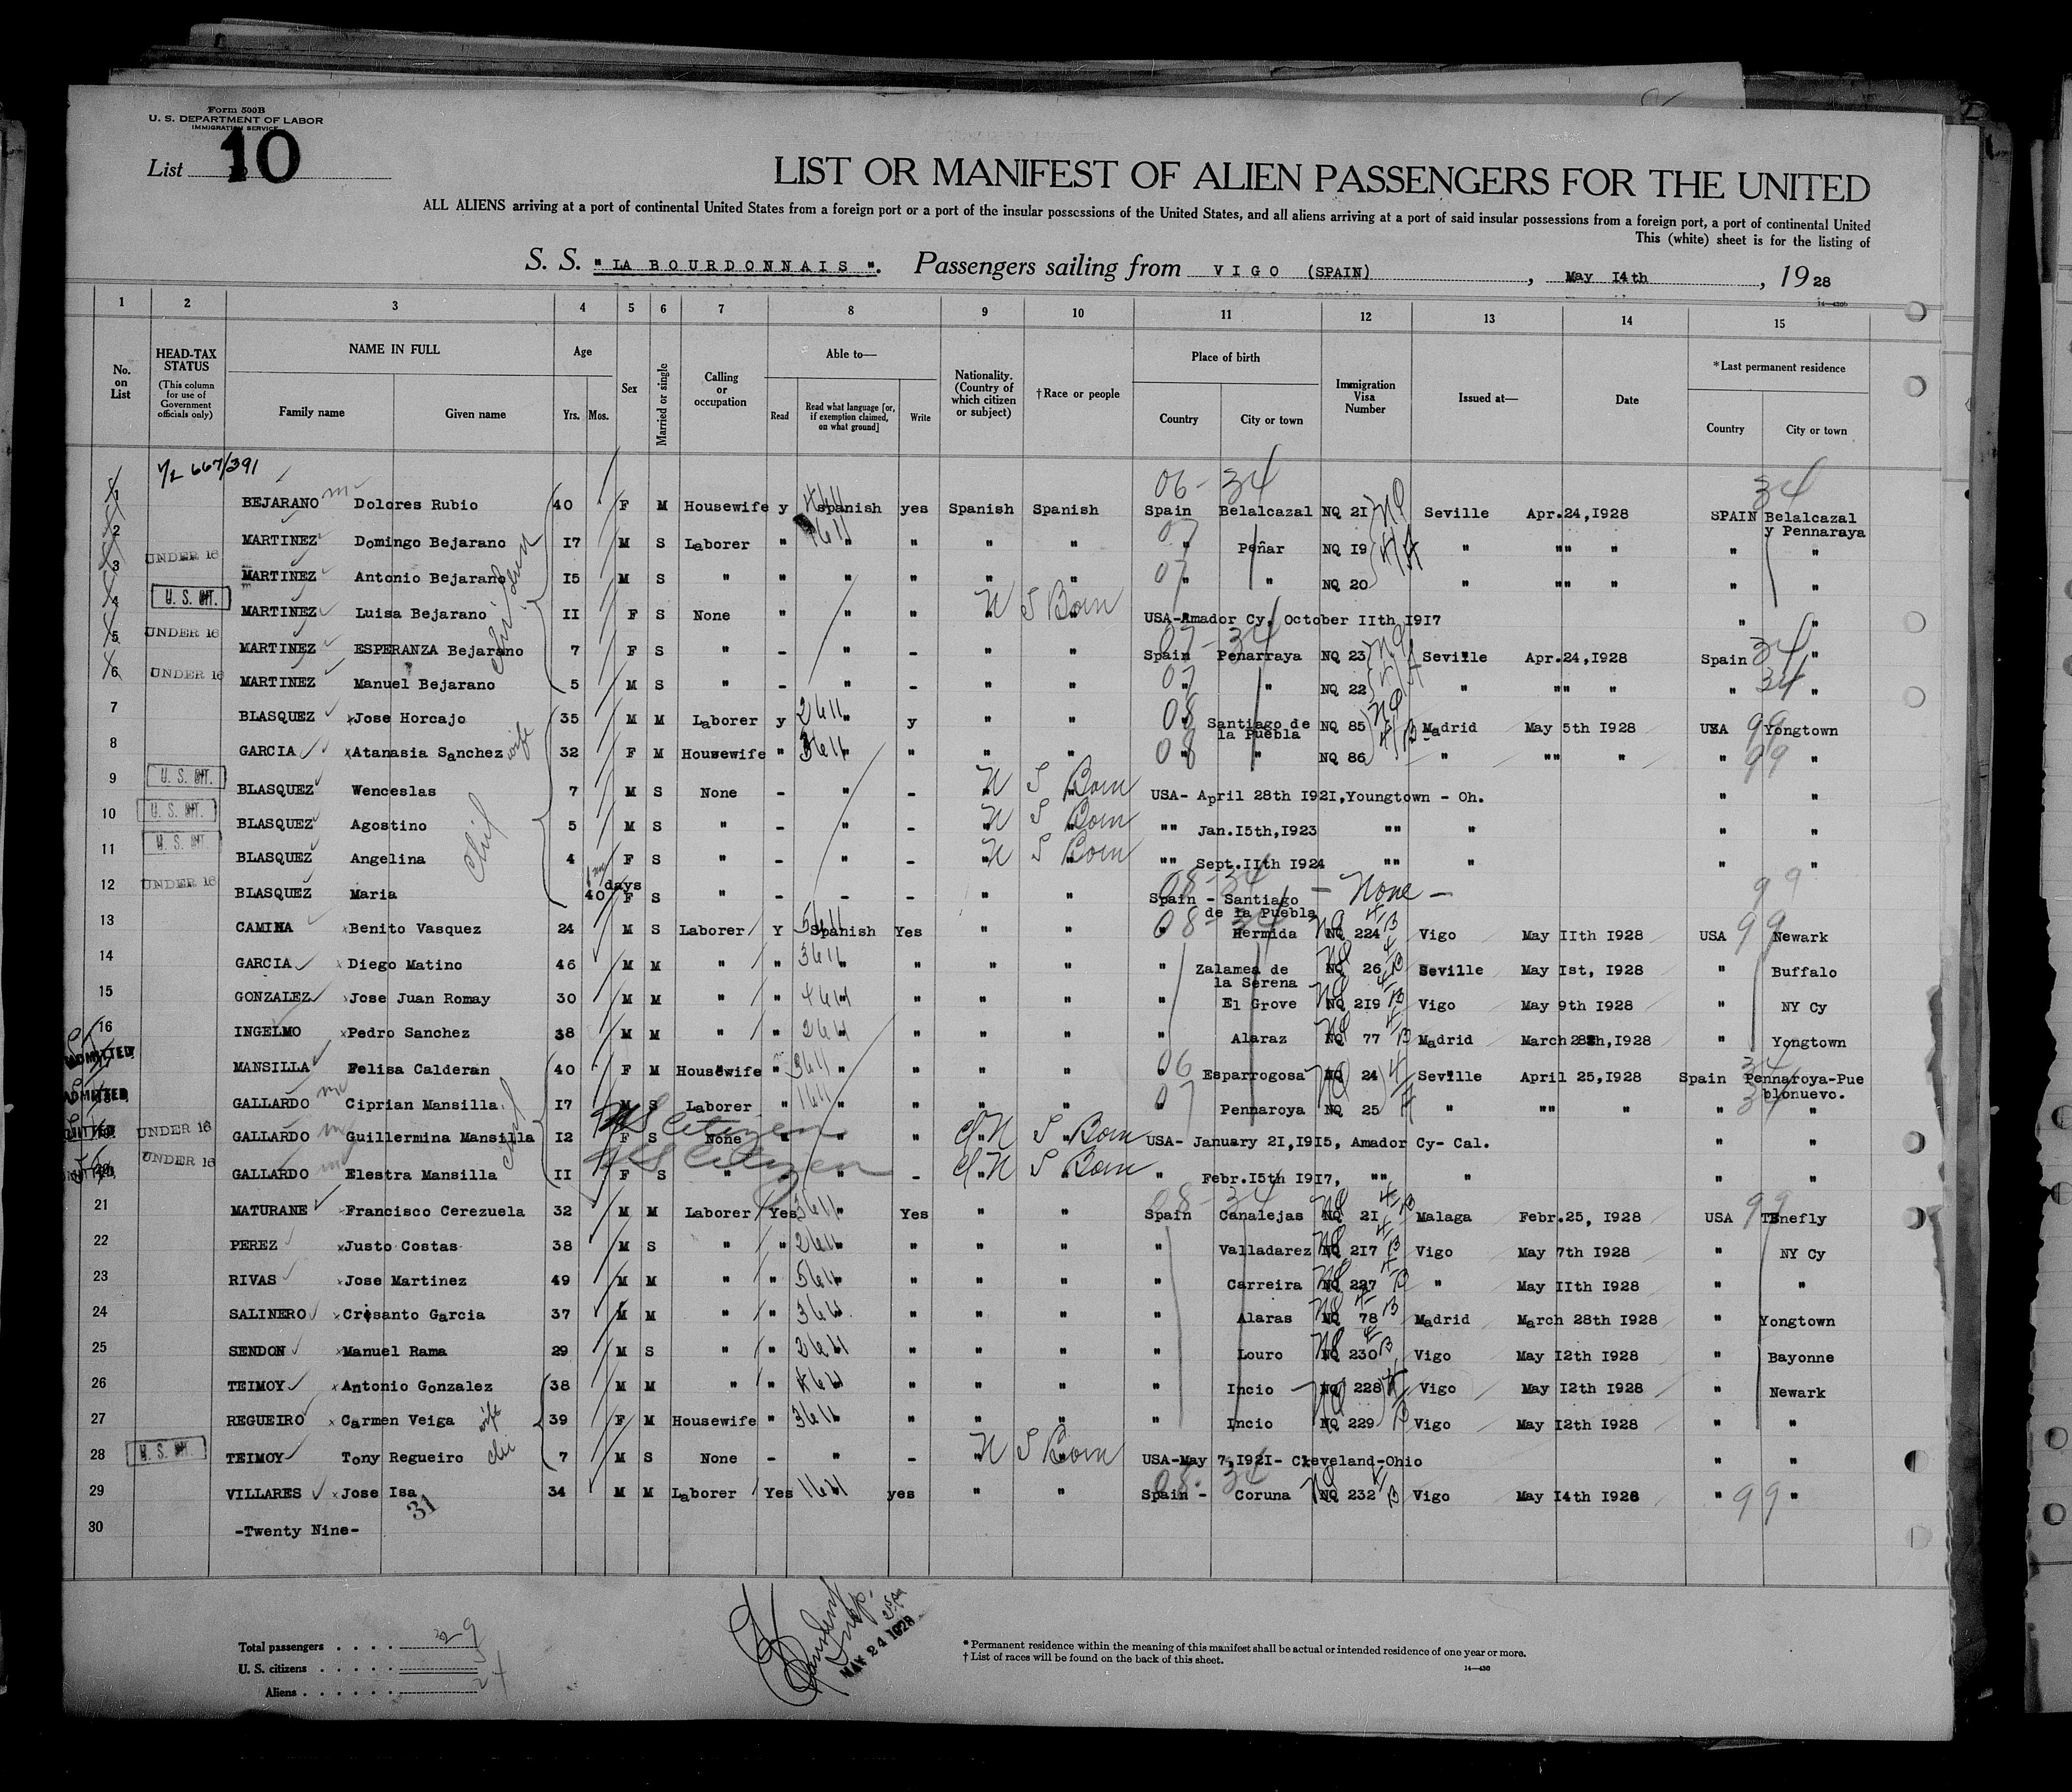 Form 500B
U. S. DEPARTMENT OF LABOR
IMMIGRATION SERVICE
List 10
LIST OR MANIFEST OF ALIEN PASSENGERS FOR THE UNITED
ALL ALIENS arriving at a port of continental United States from a foreign port or a port of the insular possessions of the United States, and all aliens arriving at a port of said insular possessions from a foreign port, a port of continental United
This (white) sheet is for the listing of
S. S. " LA BOURDONNAIS ". Passengers sailing from VIGO (SPAIN), May I4th, 1928
1 2 3 4 5 6 7 8 9 10 11 12 13 14 15
No. on List HEAD-TAX STATUS (This column for use of Government officials only) NAME IN FULL Family name Given name Age Yrs. Mos. Sex Married or single Calling or occupation Able to— Read Read what language [or, if exemption claimed, on what ground] Write Nationality. (Country of which citizen or subject) †Race or people Place of birth Country City or town Immigration Visa Number Issued at— Date *Last permanent residence Country City or town
1/2 667/391
06 - 34 34
1 BEJARANO Dolores Rubio 40 F M Housewife y Spanish yes Spanish Spanish Spain Belalcazal NQ 2I Seville Apr.24,I928 SPAIN Belalcazal
y Pennaraya
2 MARTINEZ Domingo Bejarano I7 M S Laborer " " " " " 07 Peñar NQ I9 " "" " " "
3 UNDER 16 MARTINEZ Antonio Bejarano I5 M S " " " " " " 07 " NQ 20 " "" " " "
4 U. S. CIT. MARTINEZ Luisa Bejarano II F S None " " " " " U S Born USA-Amador Cy. October IIth I9I7 " "
5 UNDER 16 MARTINEZ ESPERANZA Bejarano 7 F S " - " - " " 07 - 34 Spain Penarraya NQ 23 Seville Apr.24,I928 Spain 34 "
6 UNDER 16 MARTINEZ Manuel Bejarano 5 M S " - " - " " 07 " NQ 22 " "" " " 34 "
7 BLASQUEZ xJose Horcajo 35 M M Laborer y " y " " 08 Santiago de la Puebla NQ 85 Madrid May 5th I928 USA 99 Yongtown
8 GARCIA xAtanasia Sanchez wife 32 F M Housewife " " " " " 08 " NQ 86 " "" " " 99 "
9 U. S. CIT. BLASQUEZ Wenceslas 7 M S None - " - " " U S Born USA- April 28th I92I,Youngtown - Oh. " "
10 U. S. CIT. BLASQUEZ Agostino 5 M S " - " - " " U S Born "" Jan.I5th,I923 "" " " "
11 U. S. CIT. BLASQUEZ Angelina 4 F S " - " - " " U S Born "" Sept.IIth I924 "" " " "
12 UNDER 16 BLASQUEZ Maria 40 days F S " - - - " " 08-34 Spain - Santiago de la Puebla - None - 99
13 CAMINA xBenito Vasquez 24 M S Laborer Y Spanish Yes " " 08-34 " Hermida NQ 224 Vigo May IIth I928 USA 99 Newark
14 GARCIA xDiego Matino 46 M M " " " " " " " Zalamea de la Serena NQ 26 Seville May Ist, I928 " Buffalo
15 GONZALEZ xJose Juan Romay 30 M M " " " " " " " El Grove NQ 2I9 Vigo May 9th I928 " NY Cy
16 INGELMO xPedro Sanchez 38 M M " " " " " " " Alaraz NQ 77 Madrid March 28th,I928 " Yongtown
ADMITTED MANSILLA Felisa Calderan 40 F M Housewife " " " " " 06 Esparrogosa NQ 24 Seville April 25,I928 Spain 34 Pennaroya-Pue
blonuevo.
ADMITTED GALLARDO Ciprian Mansilla I7 M S Laborer " " " " " 07 " Pennaroya NQ 25 " "" " " 34 "
UNDER 16 GALLARDO Guillermina Mansilla I2 F S None " " " " US Citizen U S Born USA- January 2I,I9I5, Amador Cy- Cal. " "
UNDER 16 GALLARDO Elestra Mansilla II F S " " - " " US Citizen U S Born " Febr.I5th I9I7, "" " " "
21 MATURANE xFrancisco Cerezuela 32 M M Laborer Yes " Yes " " 08-34 Spain Canalejas NQ 2I Malaga Febr.25, I928 USA 99 Tenefly
22 PEREZ xJusto Costas 38 M S " " " " " " " Valladarez NQ 2I7 Vigo May 7th I928 " NY Cy
23 RIVAS xJose Martinez 49 M M " " " " " " " Carreira NQ 227 " May IIth I928 " "
24 SALINERO xCresanto Garcia 37 M M " " " " " " Alaras NQ 78 Madrid March 28th I928 " Yongtown
25 SENDON xManuel Rama 29 M S " " " " " " " Louro NQ 230 Vigo May I2th I928 " Bayonne
26 TEIMOY xAntonio Gonzalez 38 M M " " " " " " " Incio NQ 228 Vigo May I2th I928 " Newark
27 REGUEIRO xCarmen Veiga wife 39 F M Housewife " " " " " " Incio NQ 229 Vigo May I2th I928 " "
28 U. S. CIT. TEIMOY Tony Regueiro 7 M S None - " - " " U S Born USA-May 7,I92I- Cleveland-Ohio " "
29 VILLARES xJose Isa 34 M M Laborer Yes yes " " 08-34 Spain - Coruna NQ 232 Vigo May I4th I928 " 99 "
31
30 -Twenty Nine-
Total passengers . . . . 29
U. S. citizens . . . . . 5
Aliens . . . . . . 24
MAY 24 1928
* Permanent residence within the meaning of this manifest shall be actual or intended residence of one year or more.
† List of races will be found on the back of this sheet.
14—430